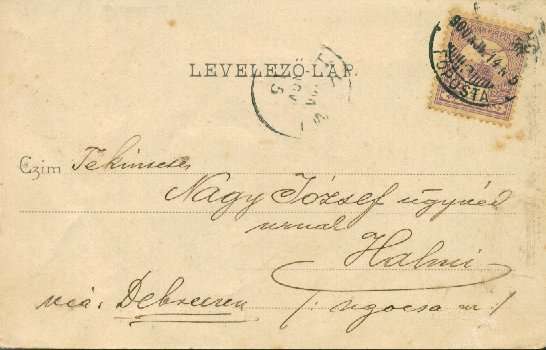 LEVELEZŐ-LAP.
FŐPOSTA
Czim Tekintetes
Nagy József ügyvéd
urnak
Halmi
via: Debreczen /: Ugocsa m :/